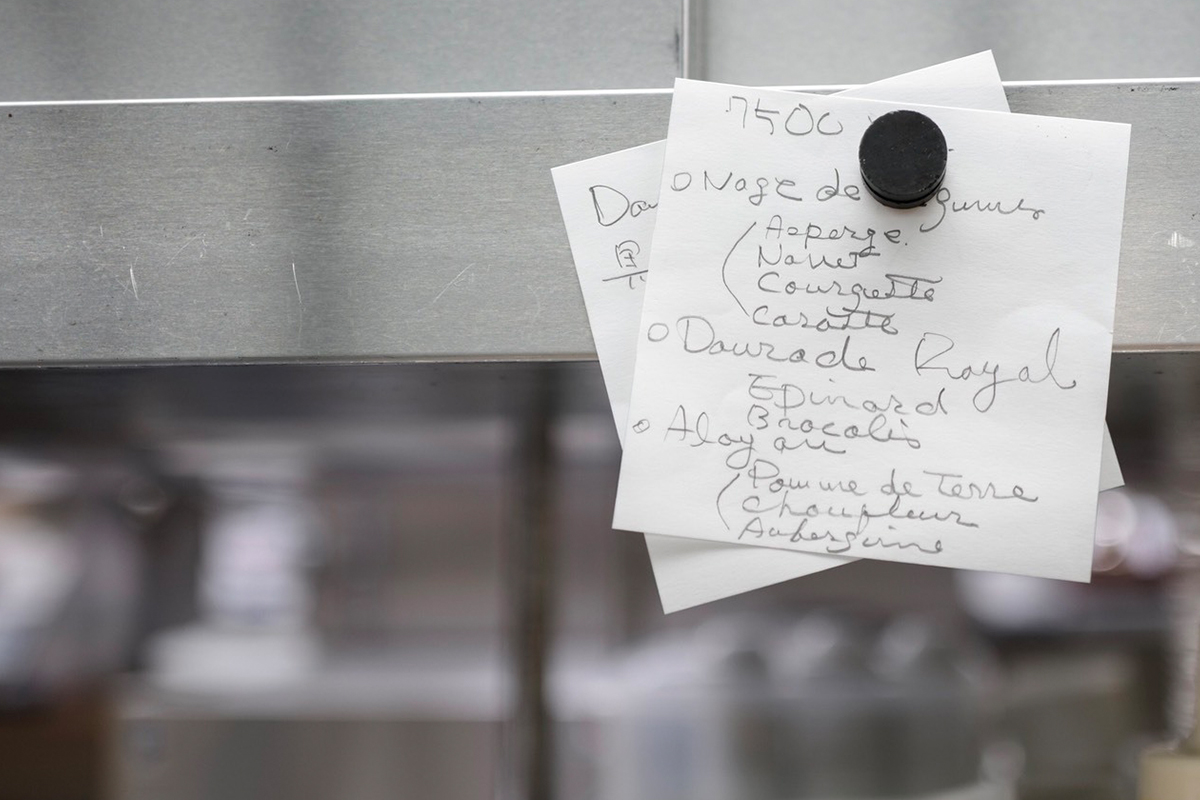 7500
Nage de
Asperge.
Navet
Courgette
Carotte
Dourade Royal
Epinard
Brocolis
Aloyau
Pomme de Terre
Choufleur
Aubergine